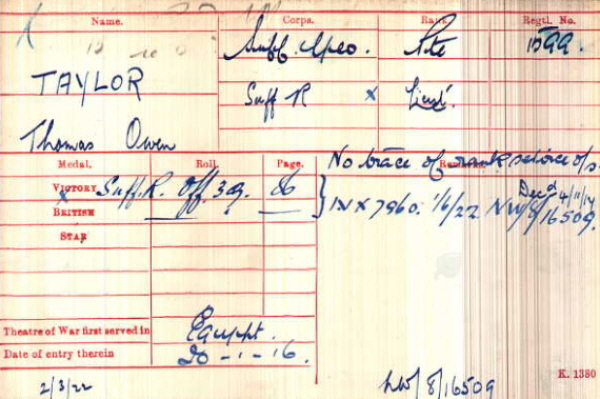 Name. Corps. Rank. Regtl. No.
Suff. Yeo. Pte 1599.
TAYLOR
Suff R x Lieut.
Thomas Owen
Medal. Roll. Page. Remarks.
No trace of rank service o/s.
VICTORY Suff. R. Off. 39. 86
x
BRITISH
IV X 7960. 1/6/22 NW/8/16509.
Decd 4/11/17
STAR
Theatre of War first served in Egypt.
Date of entry therein 20-1-16.
K. 1380
2/3/22 NW/8/16509